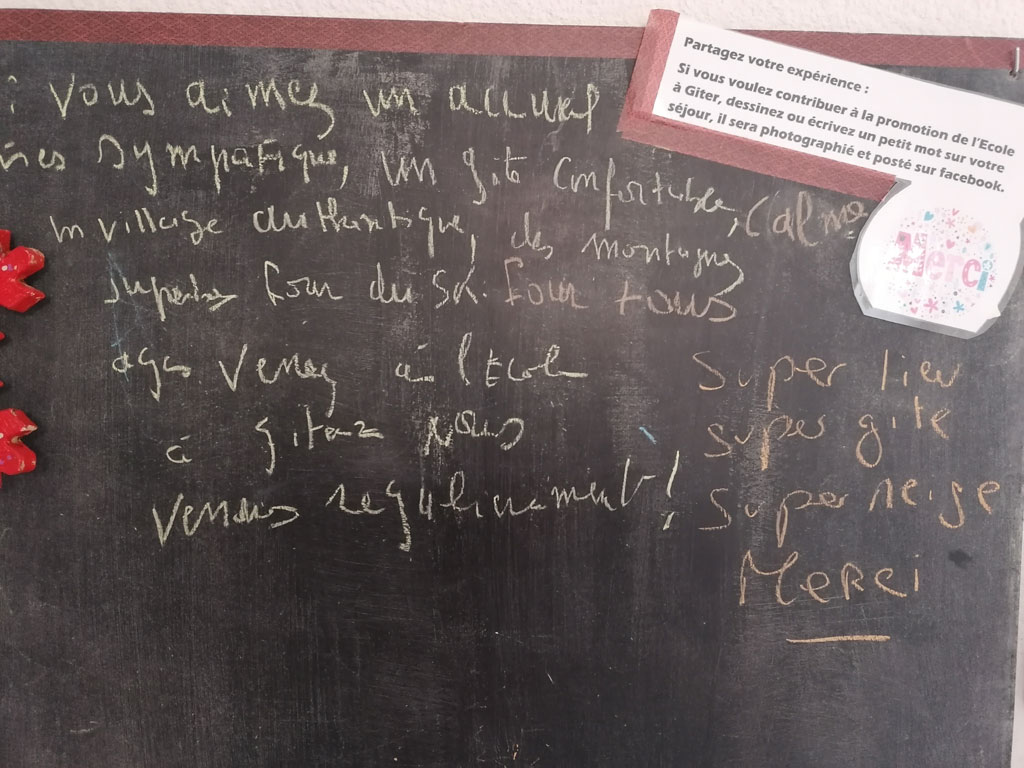 Partagez votre expérience :
Si vous voulez contribuer à la promotion de l'Ecole
à Giter, dessinez ou écrivez un petit mot sur votre
séjour, il sera photographié et posté sur facebook.
Merci
vous aimez un accueil
sympatique, un gite confortable, calme
un village authentique, des montagnes
superbes pour du ski. Pour tous
ages venez à l'Ecole
à giter nous
venons regulierement !
Super lieu
super gite
super neige
Merci